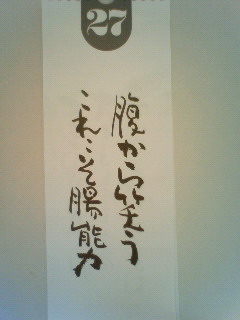 27
腹から笑う
これこそ腸能力